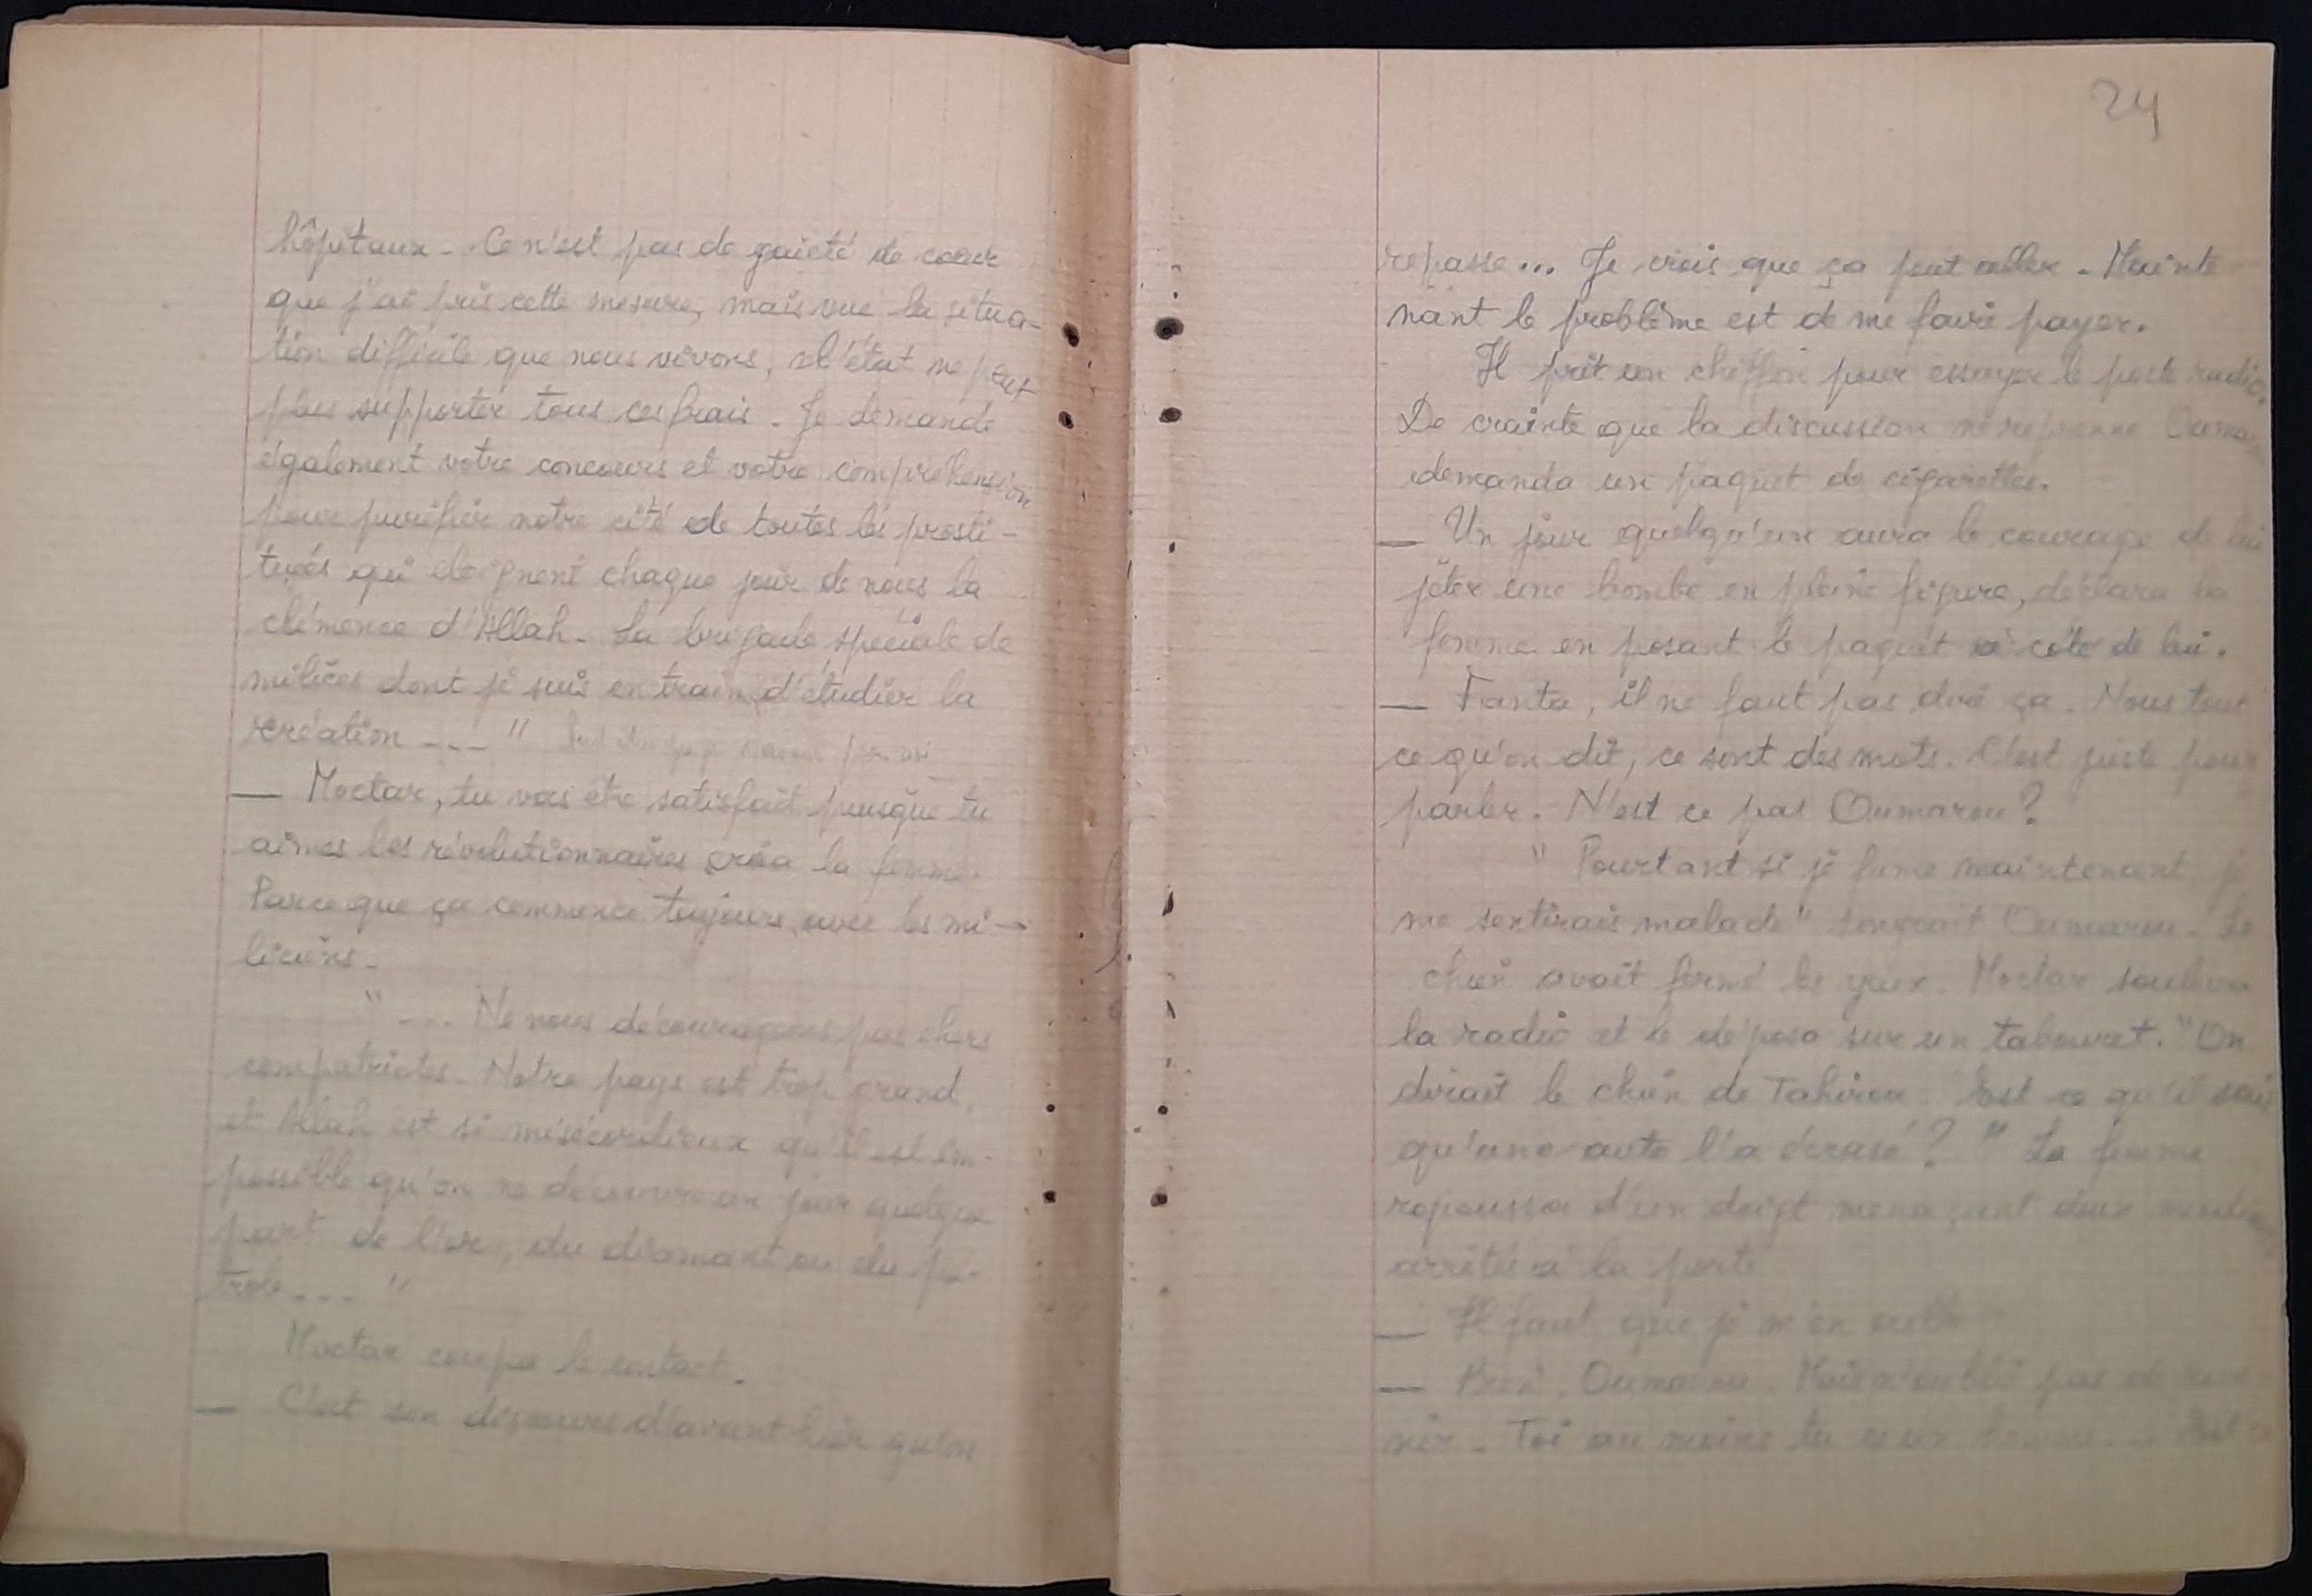 hôpitaux - Ce n'est pas de gaieté de coeur
que j'ai pris cette mesure, mais vue la situa-
tion difficile que nous vivons, l'état ne peut
plus supporter tous ces frais. Je demande
également votre concours et votre compréhension
pour purifier notre cité de toutes les prosti-
tuées qui éloignent chaque jour de nous la
clémence d'Allah. La brigade spéciale de
milices dont je suis en train d'étudier la
création --- "
— Moctar, tu vas être satisfait puisque tu
aimes les révolutionnaires cria la femme.
Parce que ça commence toujours avec les mi-
liciens.
" --- Ne nous décourageons pas chers
compatriotes. Notre pays est trop grand,
et Allah est si miséricordieux qu'il est im-
possible qu'on ne découvre un jour quelque
part de l'or, du diamant ou du pé-
trole --- "
Moctar coupa le contact.
— C'est son discours d'avant hier qu'on
24
repasse... Je crois que ça peut aller. Mainte-
nant le problème est de me faire payer.
Il prit un chiffon pour essuyer le poste radio.
De crainte que la discussion ne reprenne Oumarou
demanda un paquet de cigarettes.
— Un jour quelqu'un aura le courage de lui
jeter une bombe en pleine figure, déclara la
femme en posant le paquet à côté de lui.
— Fanta, il ne faut pas dire ça. Nous tout
ce qu'on dit, ce sont des mots. C'est juste pour
parler. N'est ce pas Oumarou?
" Pourtant si je fume maintenant, je
me sentirais malade" songeait Oumarou. Le
chien avait fermé les yeux. Moctar souleva
la radio et le déposa sur un tabouret. "On
dirait le chien de Tahirou. Est ce qu'il sait
qu'une auto l'a écrasé? " La femme
repoussa d'un doigt menaçant deux
arrêtés à la porte.
— Il faut que je m'en aille
— Bon, Oumarou. Mais n'oublie pas de reve
nir. Toi au moins tu es un homme... Est ce